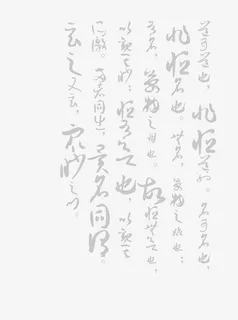 道可道也，非恒道也。名可名也，
非恒名也。无名，萬物之始也；
有名，萬物之母也。故恒无欲也，
以觀其眇；恒有欲也，以觀其
所徼。兩者同出，異名同謂。
玄之又玄，眾眇之門。